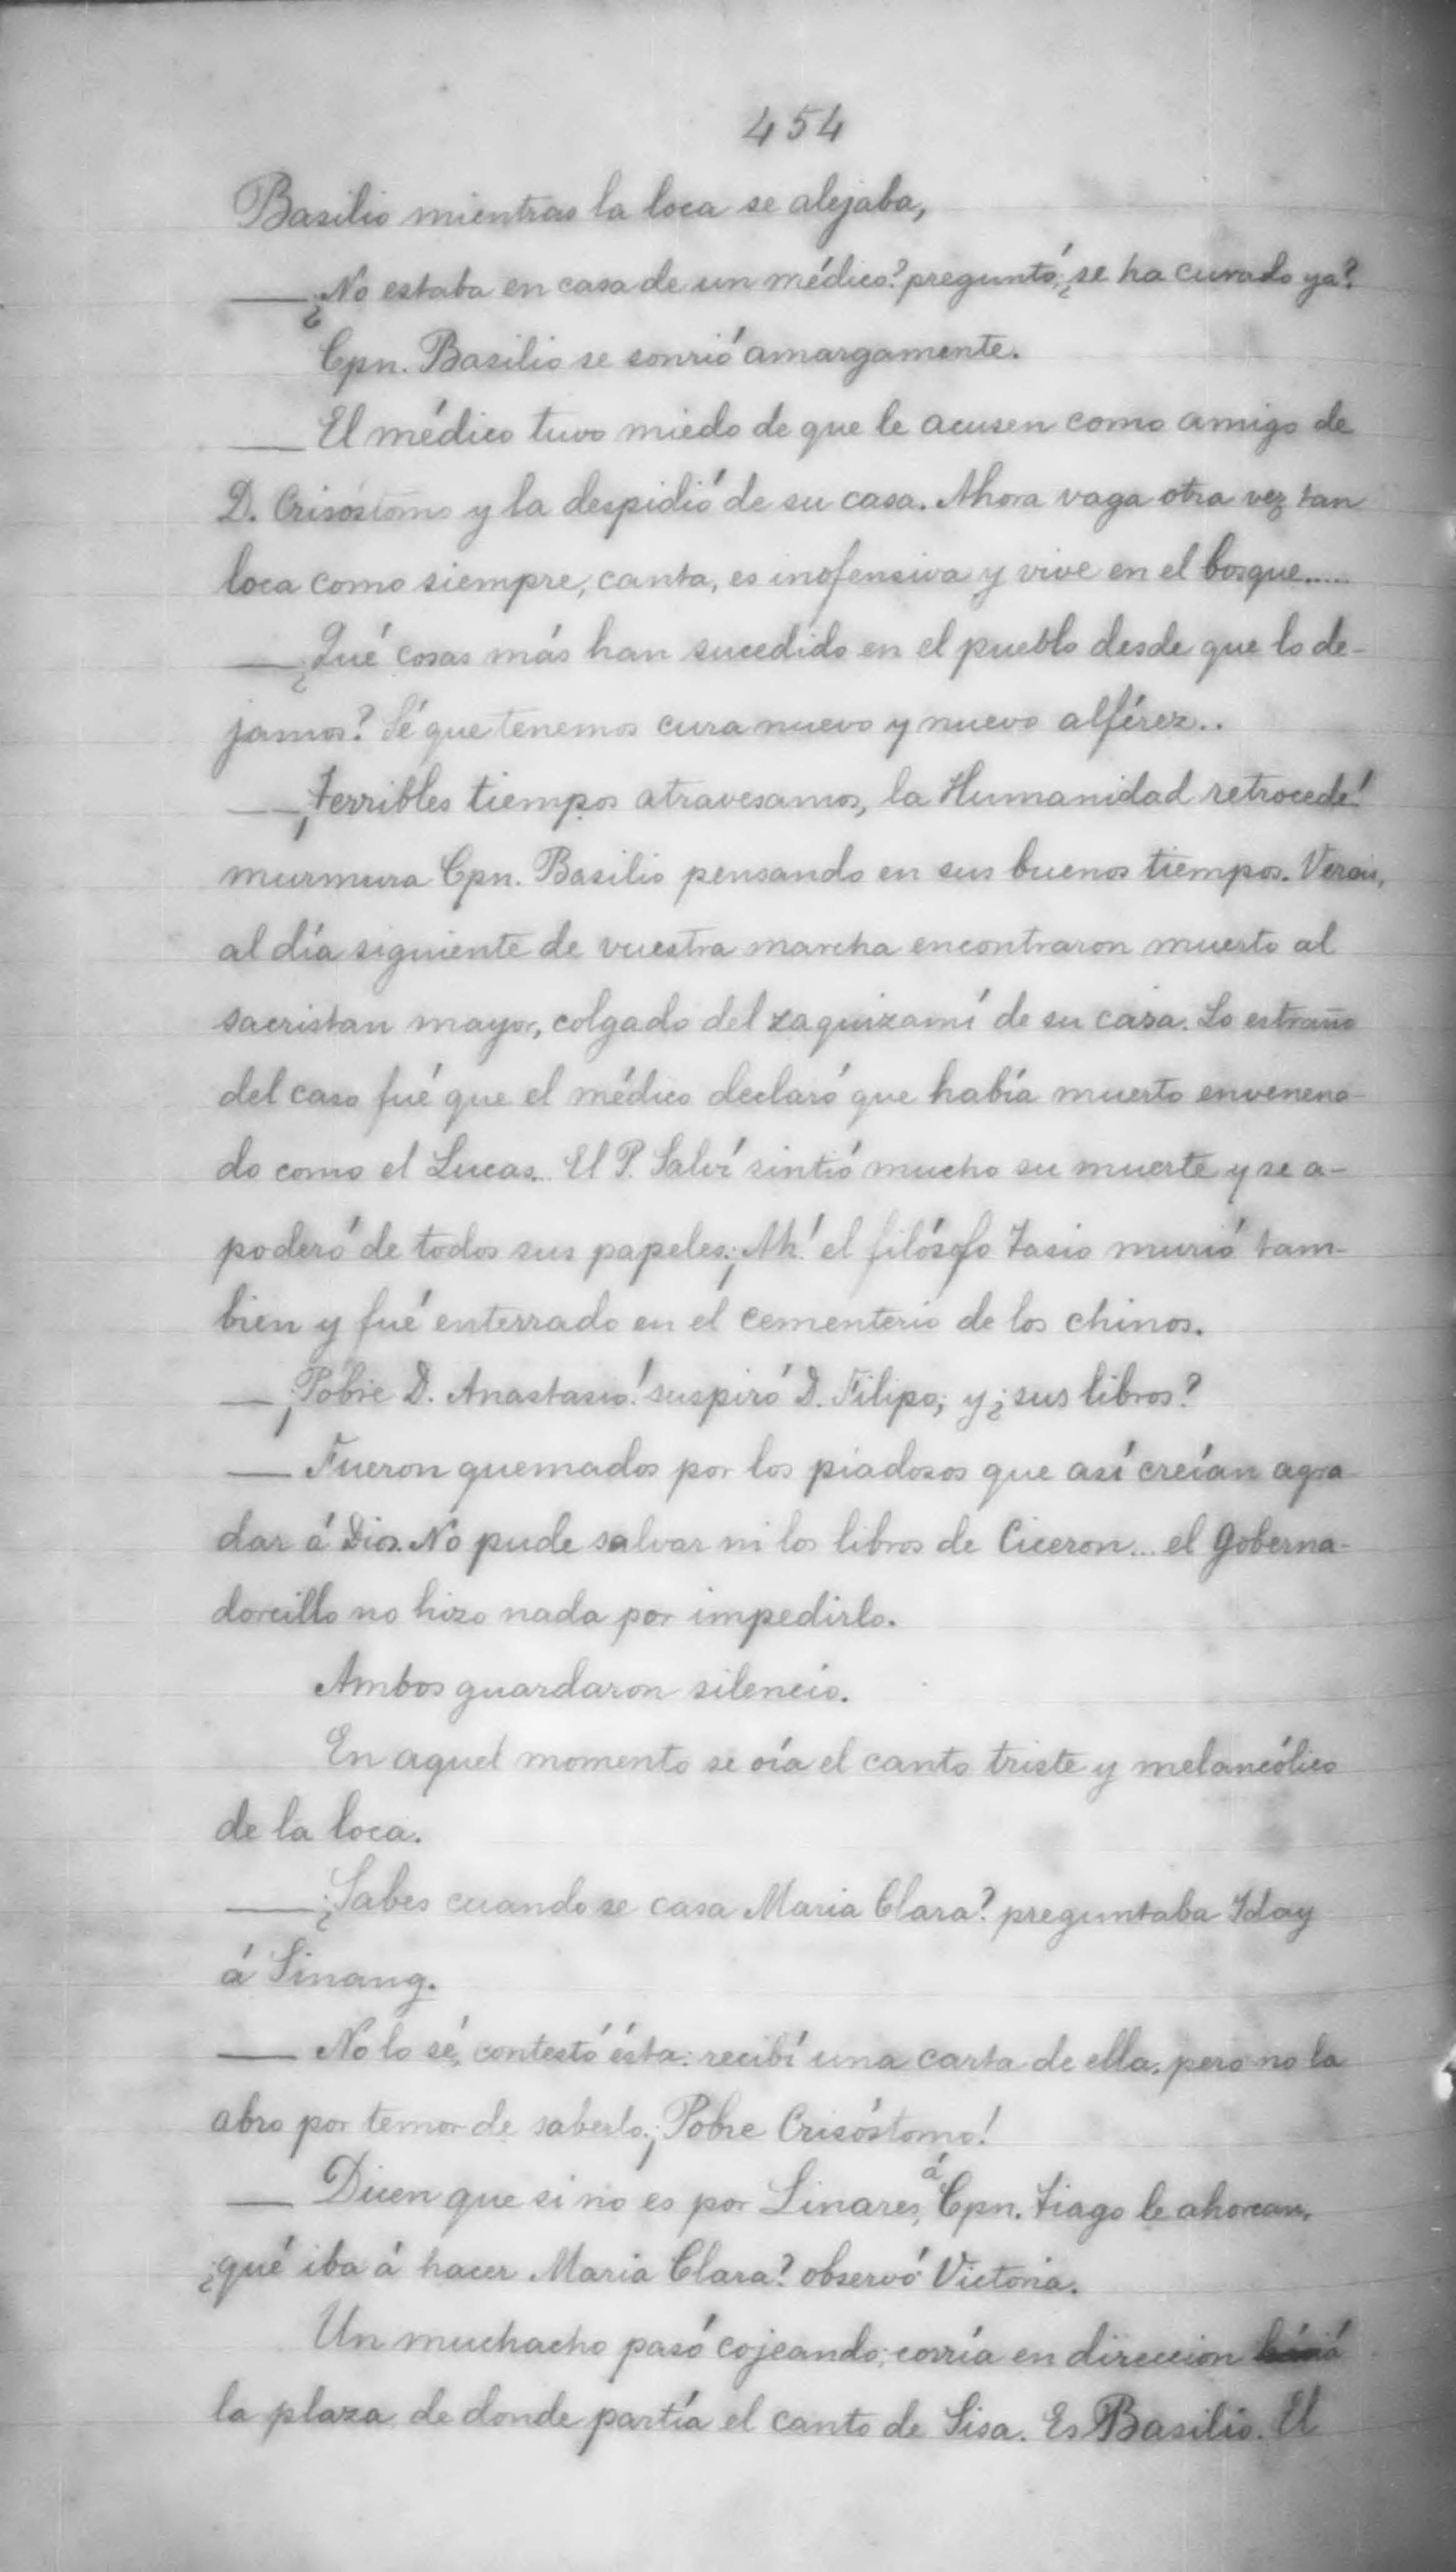 454
Basilio mientras la loca se alejaba,
— ¿No estaba en casa de un médico? preguntó; ¿se ha curado ya?
Cpn. Basilio se sonrió amargamente.
— El médico tuvo miedo de que le acusen como amigo de
D. Crisóstomo y la despidió de su casa. Ahora vaga otra vez tan
loca como siempre, canta, es inofensiva y vive en el bosque.....
— ¿Qué cosas más han sucedido en el pueblo desde que lo de-
jamos? Sé que tenemos cura nuevo y nuevo alférez..
— ¡Terribles tiempos atravesamos, la Humanidad retrocede!
murmura Cpn. Basilio pensando en sus buenos tiempos. Verais,
al día siguiente de vuestra marcha encontraron muerto al
sacristan mayor, colgado del zaquizamí de su casa. Lo estraño
del caso fué que el médico declaró que había muerto envenena-
do como el Lucas... El P. Salví sintió mucho su muerte y se a-
poderó de todos sus papeles. ¡Ah! el filósofo Tasio murió tam-
bien y fué enterrado en el cementerio de los chinos.
— ¡Pobre D. Anastasio! suspiró D. Filipo; y ¿sus libros?
— Fueron quemados por los piadosos que así creían agra-
dar á Dios. No pude salvar ni los libros de Ciceron... el Goberna-
dorcillo no hizo nada por impedirlo.
Ambos guardaron silencio.
En aquel momento se oía el canto triste y melancólico
de la loca.
— ¿Sabes cuando se casa Maria Clara? preguntaba Iday
á Sinang.
— No lo sé, contestó ésta: recibí una carta de ella, pero no la
abro por temor de saberlo. ¡Pobre Crisóstomo!
— Dicen que si no es por Linares, á Cpn. Tiago le ahorcan,
¿qué iba á hacer Maria Clara? observó Victoria.
Un muchacho pasó cojeando; corría en direccion á
la plaza de donde partía el canto de Sisa. Es Basilio. El